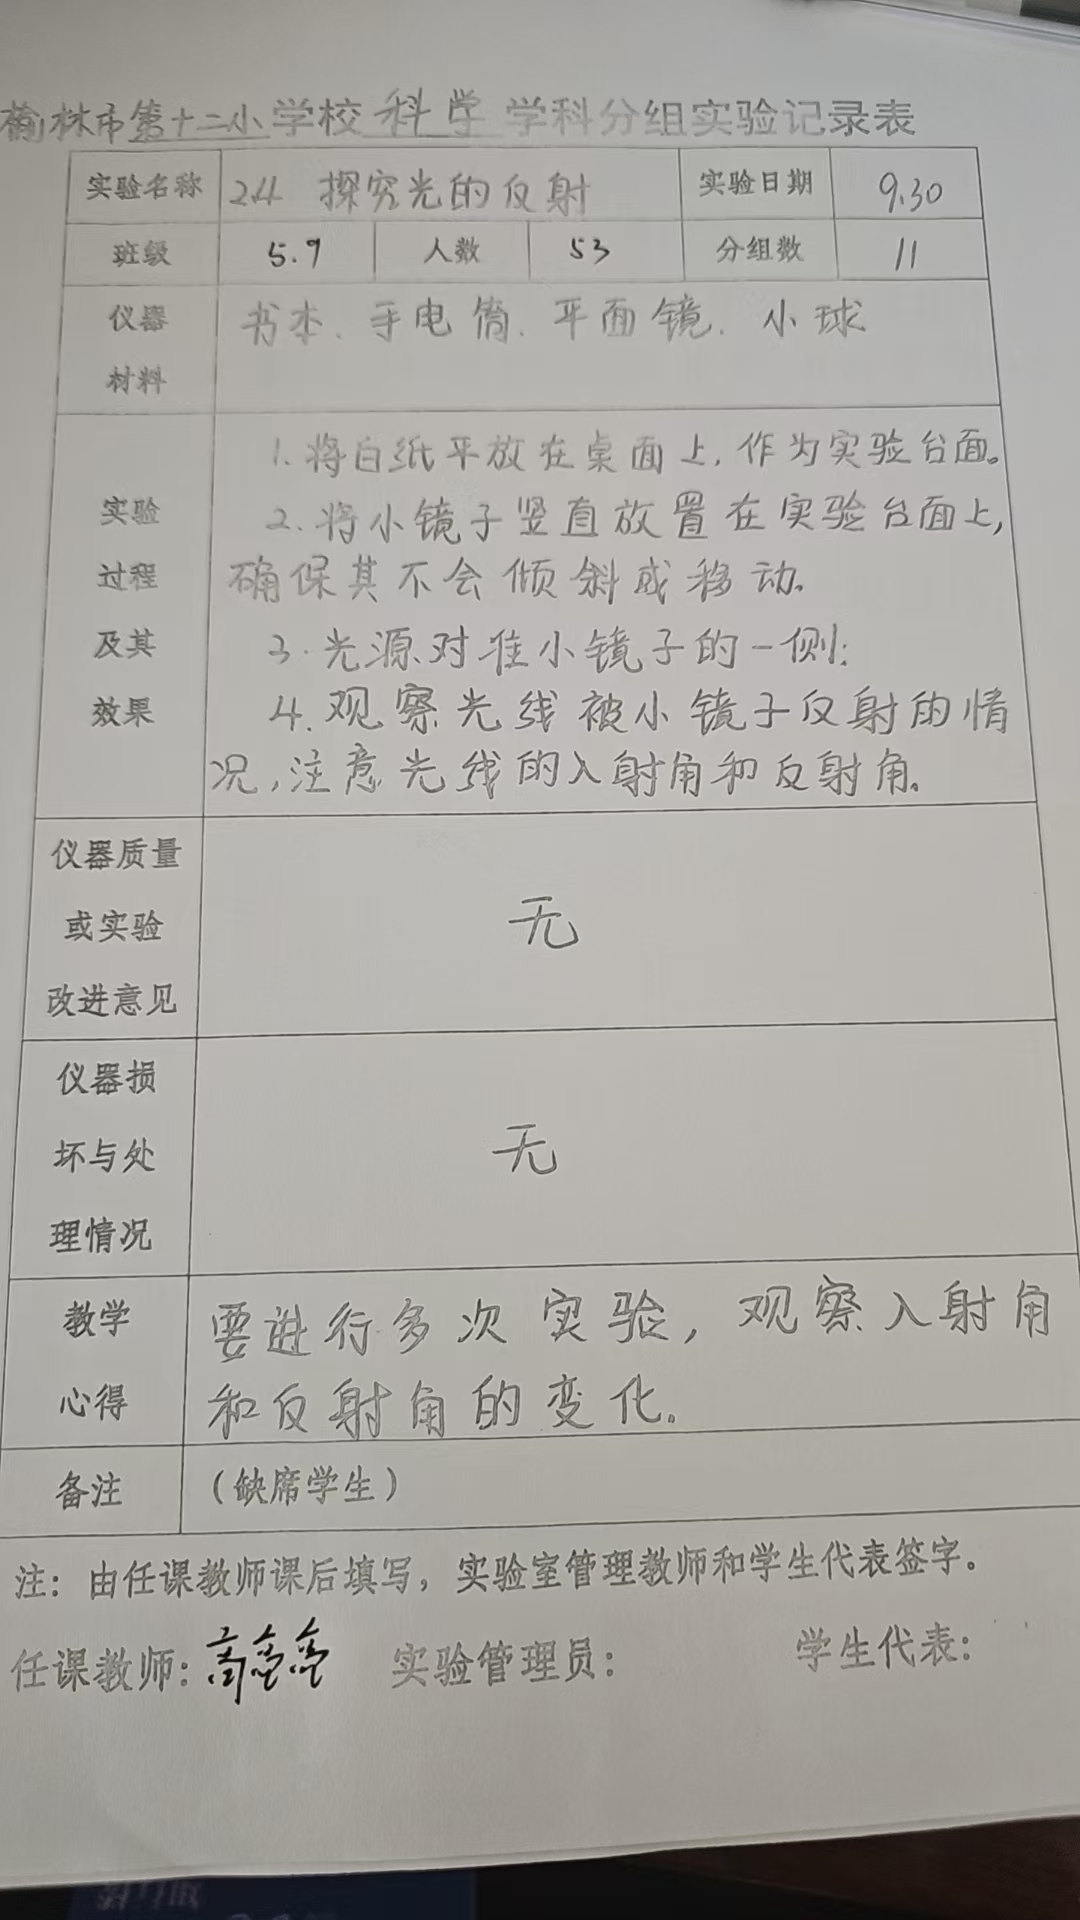 榆林市第十二小学校 科学 学科分组实验记录表
实验名称 24 探究光的反射 实验日期 9.30
班级 5.9 人数 53 分组数 11
仪器材料 书本、手电筒、平面镜、小球
实验过程及其效果
1.将白纸平放在桌面上，作为实验台面。
2.将小镜子竖直放置在实验台面上，
确保其不会倾斜或移动。
3.光源对准小镜子的一侧；
4.观察光线被小镜子反射的情
况，注意光线的入射角和反射角。
仪器质量或实验改进意见 无
仪器损坏与处理情况 无
教学心得 要进行多次实验，观察入射角
和反射角的变化。
备注 （缺席学生）
注：由任课教师课后填写，实验室管理教师和学生代表签字。
任课教师: 实验管理员: 学生代表: